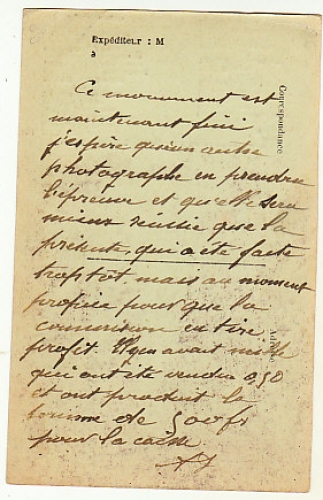 Expéditeur : M
à
Correspondance
Ce monument est
maintenant fini
j'espère qu'un autre
photographe en prendra
l'épreuve et qu'elle sera
mieux réussie que la
présente, qui a été faite
trop tôt mais au moment
propice pour que la
commission en tire
profit. Il y en avait mille
qui ont été vendu 0,50
et ont produit la
somme de 500 frs
pour la caisse